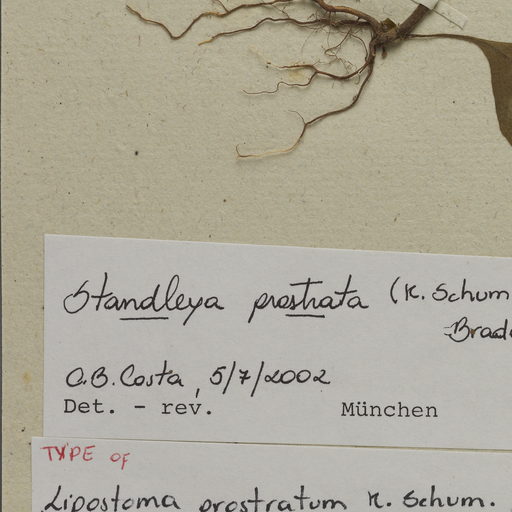 Standleya prostrata (K. Schum
Brad
C.B. Costa, 5/7/2002
Det. - rev. München
TYPE OF
Lipostoma prostratum K. Schum.